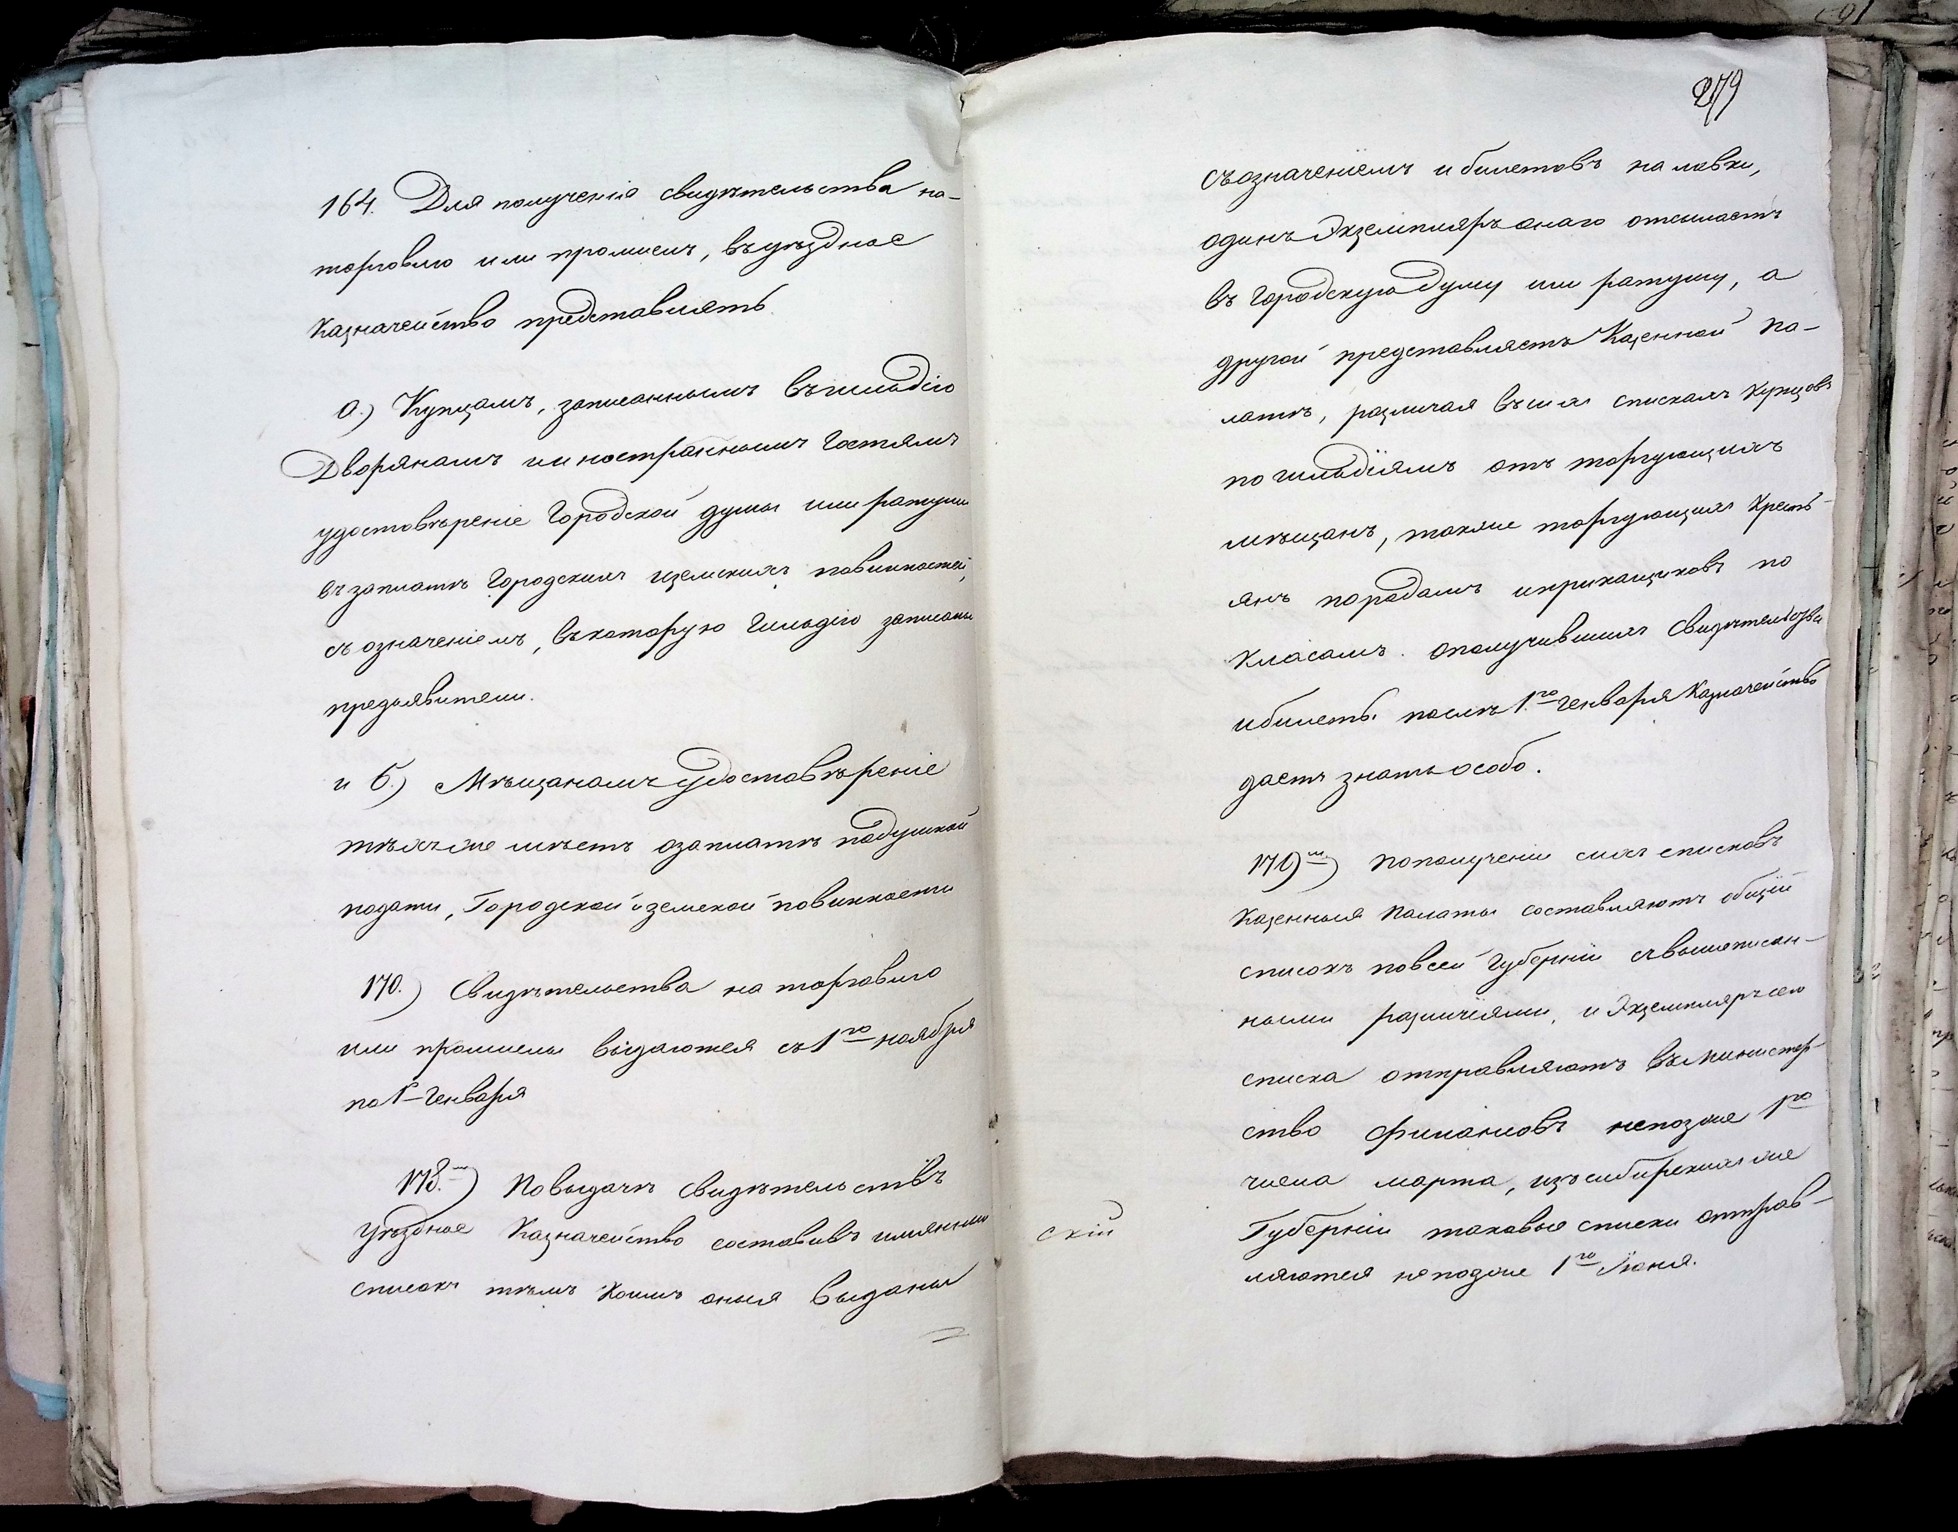 164. Для полученія свидѣтельства на-
торговлю или промыслъ, въуѣздное
Казначейство представлять.
а.) Купцамъ, записаннымъ въгильдію
Дворянамъ ииностраннымъ Гостямъ
удостовѣреніе Городской думы или ратуши
въ заплатѣ Городскихъ иземскихъ повинностей,
съ означеніемъ, въкоторую Гильдію записаны
предъявители.
и б.) Мѣщанамъ удостовѣреніе
тѣхъ же мѣстъ озаплатѣ подушной
подати, Городской и земской повинности
170.) Свидѣтельства на торговлю
или промыслы выдаются съ 1го ноября
по 1е Генваря
178.) По выдачѣ свидѣтельствъ
Уѣздное Казначейство составивъ имянный
списокъ тѣмъ коимъ оныя выданы
279
съозначеніемъ и билетовъ на лавки,
одинъ Экземпляръ онаго отсылаетъ
въ Городскую Думу или ратушу, а
другой представляетъ Казенной Па-
латѣ, различая въ сихъ спискахъ купцовъ
по гильдіямъ отъ торгующихъ
мѣщанъ, также торгующихъ Кресть-
янъ породамъ иприкащиковъ по
Класамъ. ополучившихъ Свидѣтельства
ибилеты послѣ 1го Генваря Казначейство
даетъ знать особо.
179) пополученіи сихъ списковъ
Казенныя Палаты составляютъ общій
списокъ повсей Губерніи съвышеписан-
ными различіями, и Экземпляръ сего
списка отправляютъ въ Министер-
ство Финансовъ непозже 1го
числа марта, изъ сибирскихъ же
Губерній таковые списки отправ-
скій
ляются непозже 1го Іюня.